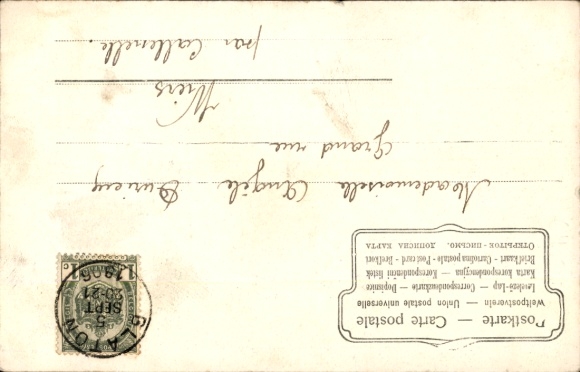 Postkarte — Carte postale
Weltpostverein — Union postale universelle
Levelező-Lap — Correspondenzkarte — Dopisnice
Karta korespondencyjna - Korespondenční listek
Briefkaart - Cartolina postale - Post card - Brefkort
Открытое письмо. Дописна карта
BLATON
5
SEPT
20-21
1906
Mademoiselle Angèle
Grand rue
Wiers
par Callenelle.